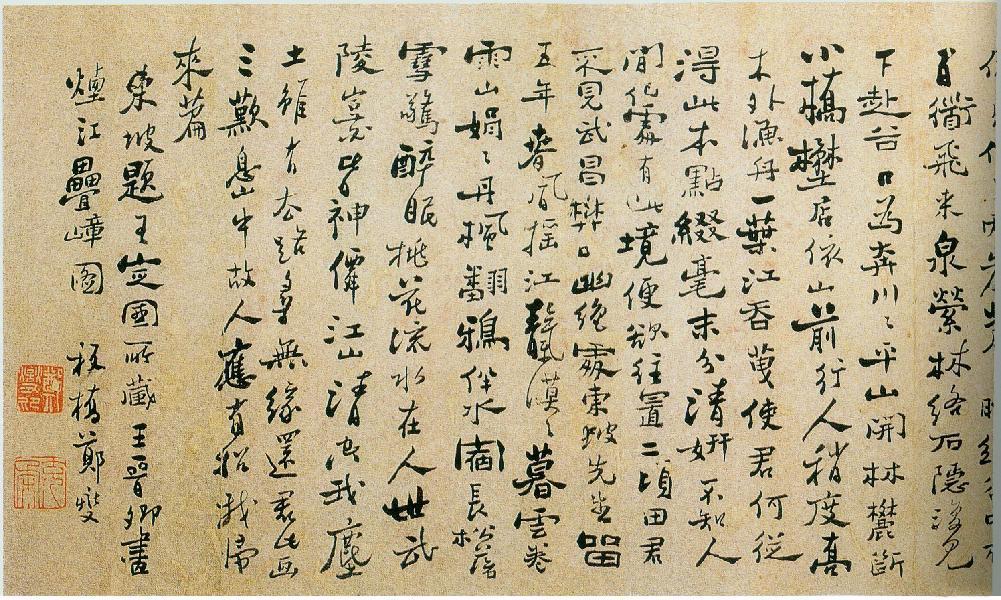 百衟飛來泉縈林絡石隱復見
下赴谷口為奔川〻平山開林麓斷
小橋壄店依山前行人稍度喬
木外漁舟一葉江吞天使君何從
得此本點綴毫末分清妍不知人
間何處有此境便欲往置二頃田君
不見武昌樊口幽絕處東坡先生留
五年春風搖江天漠〻暮雲卷
雨山娟〻丹楓翻鴉伴水宿長松落
雪驚醉眠桃花流水在人世武
陵豈皆神僊江山清空我塵
土雖有去路尋無緣還君此畫
三歎息山中故人應有招我歸
來篇
東坡題王定國所藏王晉卿畫
煙江疊嶂圖 板橋鄭燮